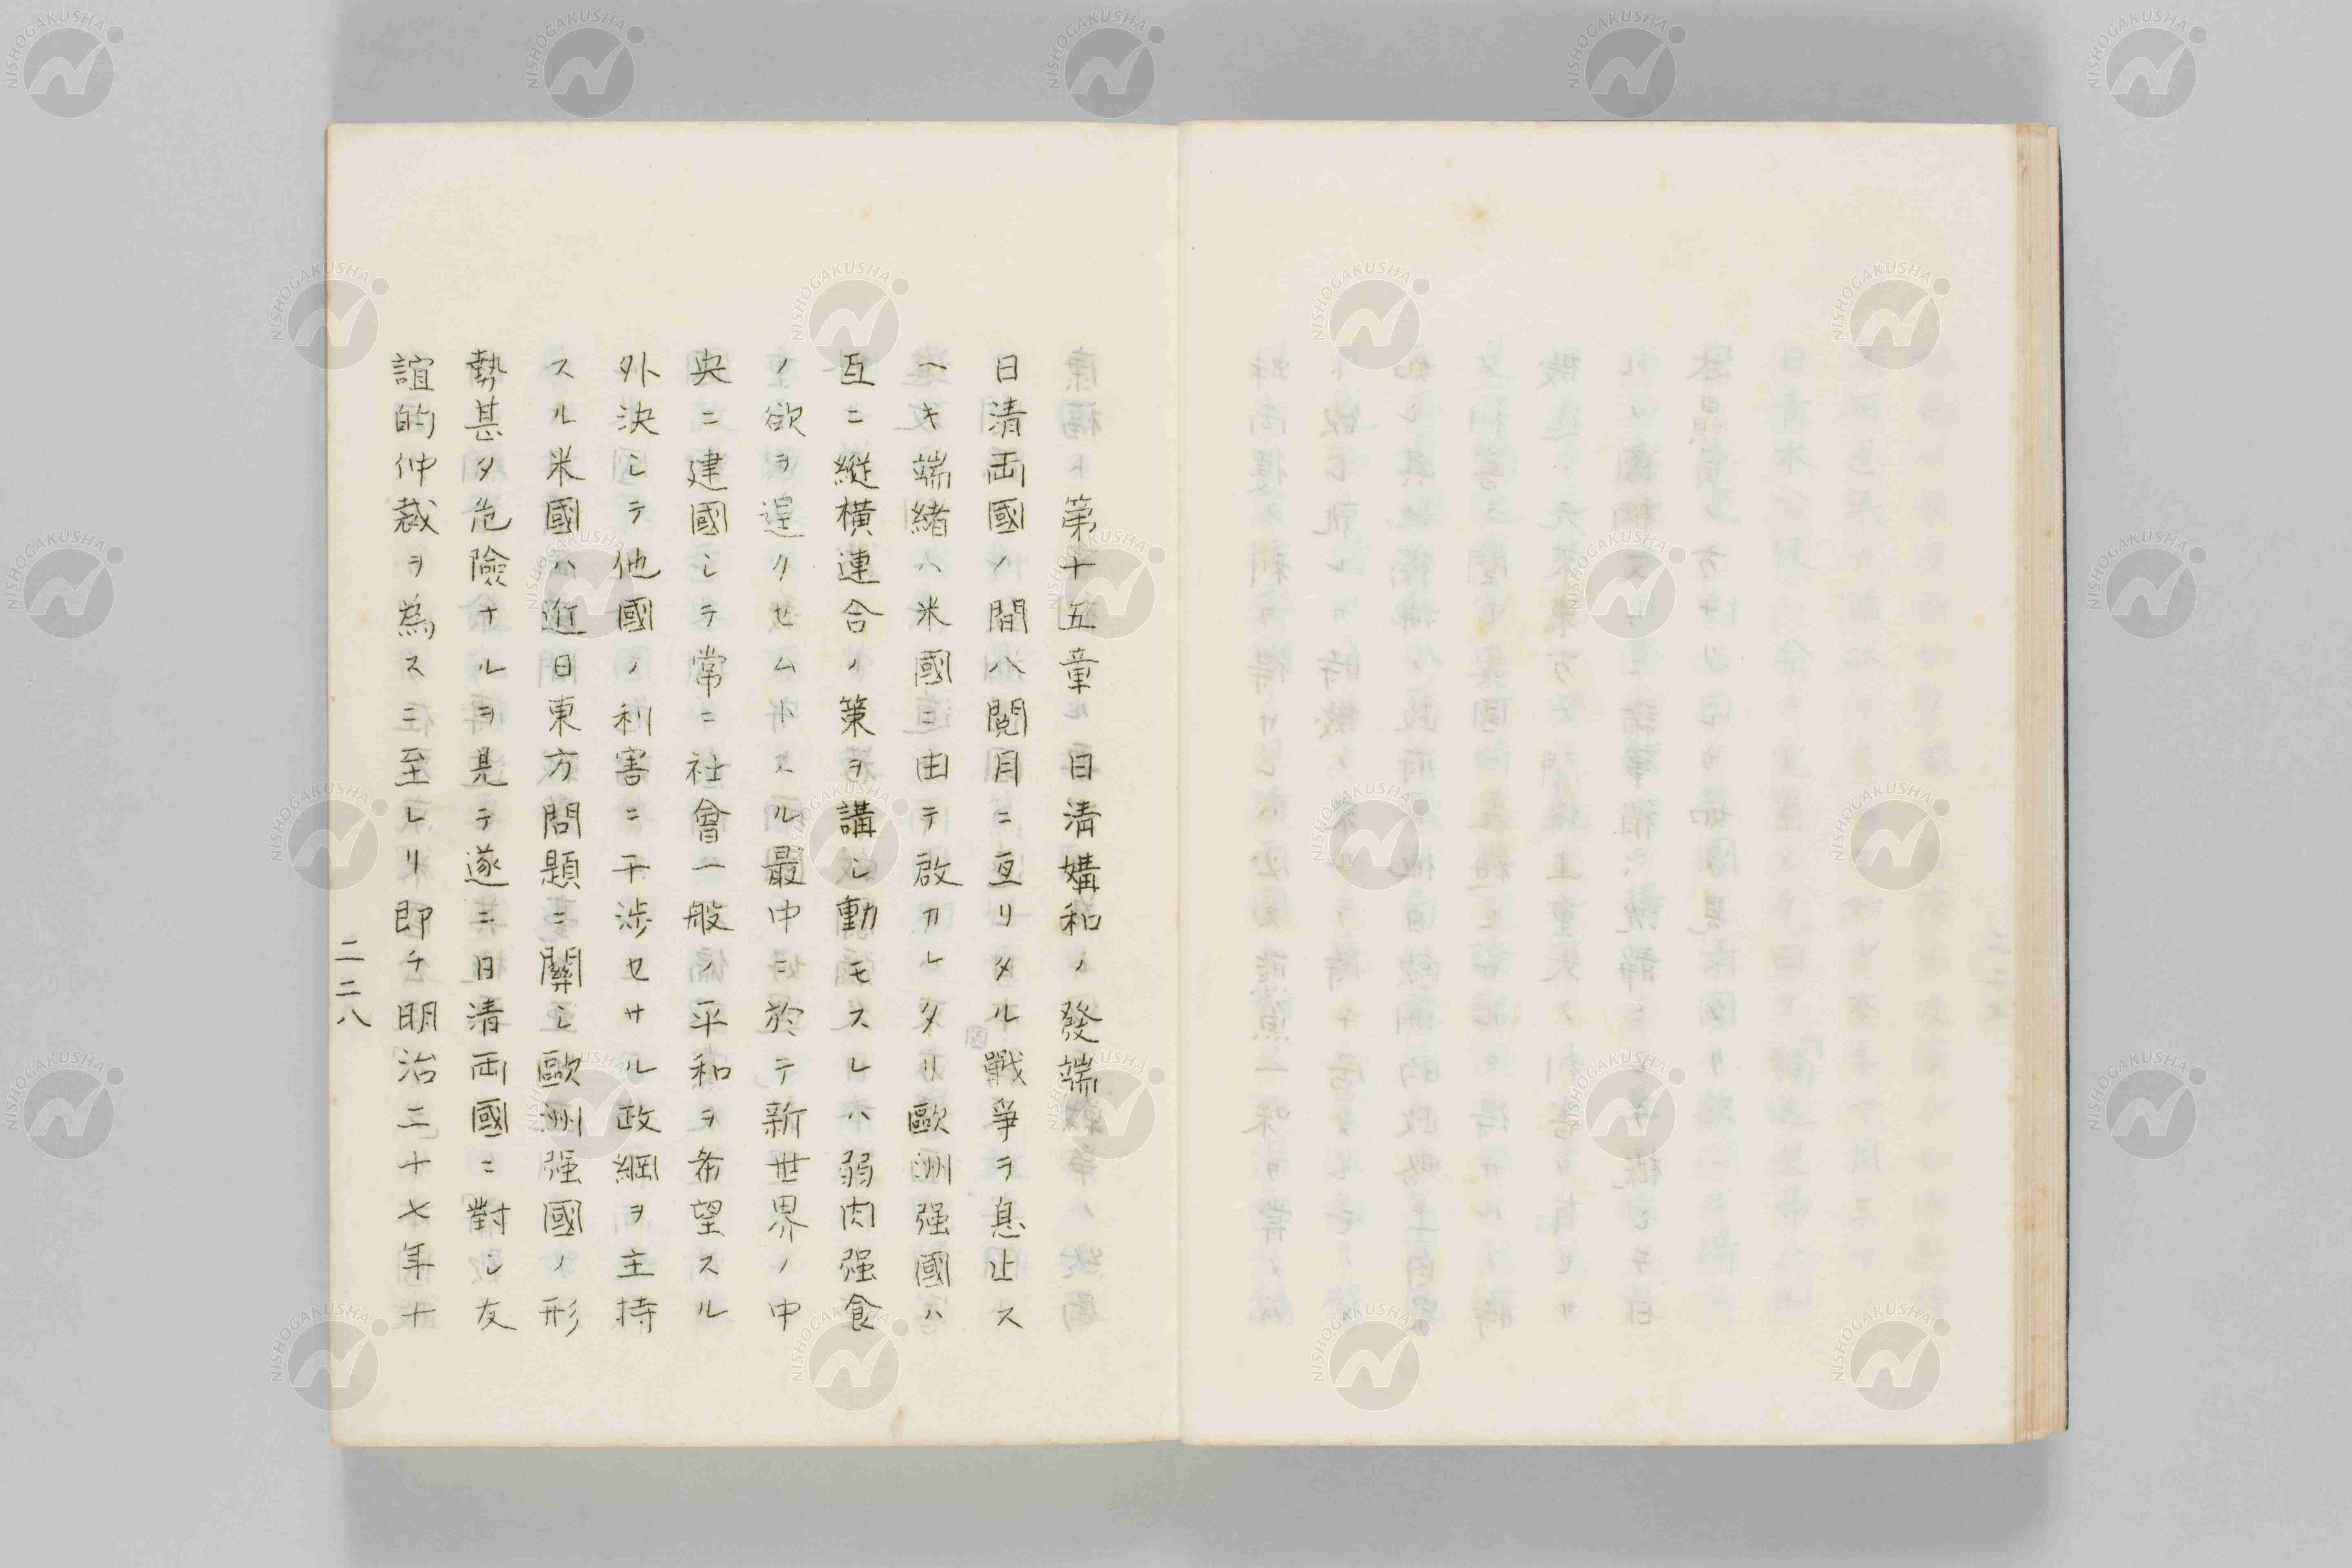 第十五章 日清媾和ノ發端
日清兩國ノ間ハ閲月ニ亙リタル戰爭ヲ息止ス
ヘキ端緒ハ米國ニ由テ啟カレタリ歐洲强國ハ
互ニ縦橫連合ノ策ヲ講シ動モスレハ弱肉强食
ノ欲ヲ逞クセムトスル最中ニ於テ新世界ノ中
央ニ建國シテ常ニ社會一般ノ平和ヲ希望スル
外決シテ他國ノ利害ニ干渉セサル政綱ヲ主持
スル米國ハ近日東方問題ニ關シ歐洲强國ノ形
勢甚タ危險ナルヲ見テ遂ニ日清兩國ニ對シ友
誼的仲裁ヲ為スニ至レリ即チ明治二十七年十
二二八
NISHOGAKUSHA